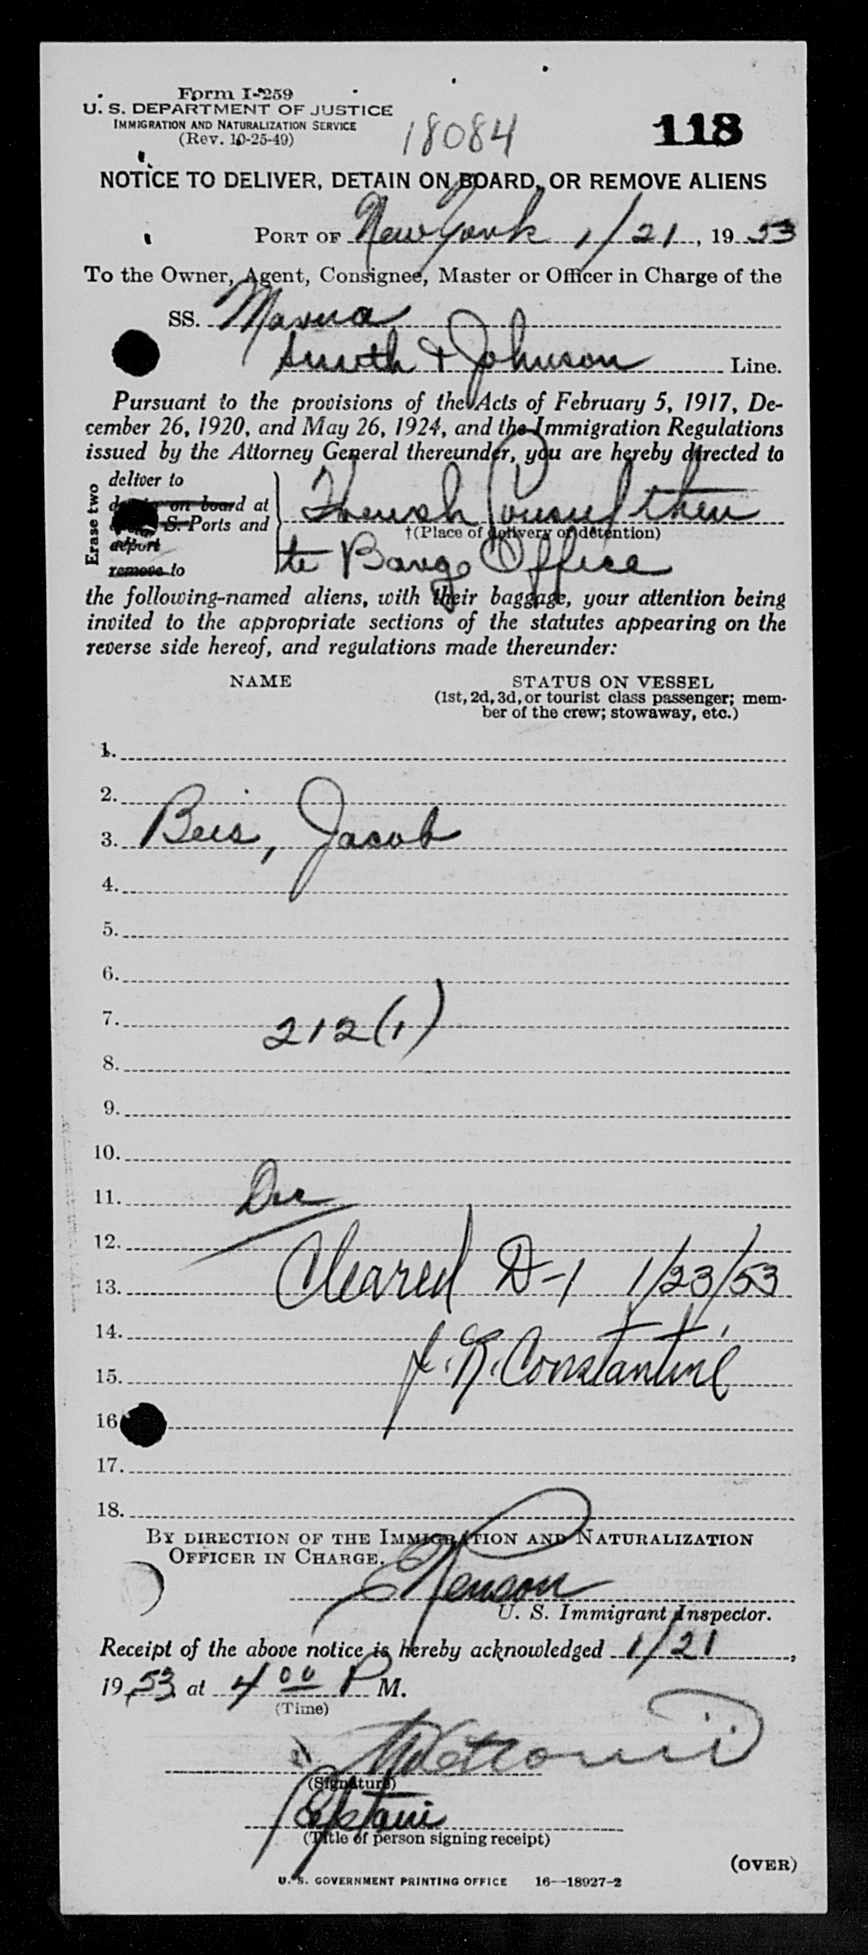 Form I-259
U. S. DEPARTMENT OF JUSTICE
IMMIGRATION AND NATURALIZATION SERVICE
(Rev. 10-25-49)
18084
118
NOTICE TO DELIVER, DETAIN ON BOARD, OR REMOVE ALIENS
PORT OF New York 1/21, 19 53
To the Owner, Agent, Consignee, Master or Officer in Charge of the
SS.
Smith & Johnson Line.
Pursuant to the provisions of the Acts of February 5, 1917, De-
cember 26, 1920, and May 26, 1924, and the Immigration Regulations
issued by the Attorney General thereunder, you are hereby directed to
Erase two
deliver to
on board at
S. Ports and
deport
remove to
French Consul then
†(Place of delivery or detention)
to Barge Office
the following-named aliens, with their baggage, your attention being
invited to the appropriate sections of the statutes appearing on the
reverse side hereof, and regulations made thereunder:
NAME STATUS ON VESSEL
(1st, 2d, 3d, or tourist class passenger; mem-
ber of the crew; stowaway, etc.)
1.
2.
3. Beis, Jacob
4.
5.
6.
7. 212(1)
8.
9.
10.
11.
12.
13. Cleared D-1 1/23/53
14.
15. Constantine
16
17.
18.
BY DIRECTION OF THE IMMIGRATION AND NATURALIZATION
OFFICER IN CHARGE.
U. S. Immigrant Inspector.
Receipt of the above notice is hereby acknowledged 1/21,
19 53 at 4 00 P M.
(Time)
(Signature)
Captain
(Title of person signing receipt)
(OVER)
U. S. GOVERNMENT PRINTING OFFICE 16—18927-2